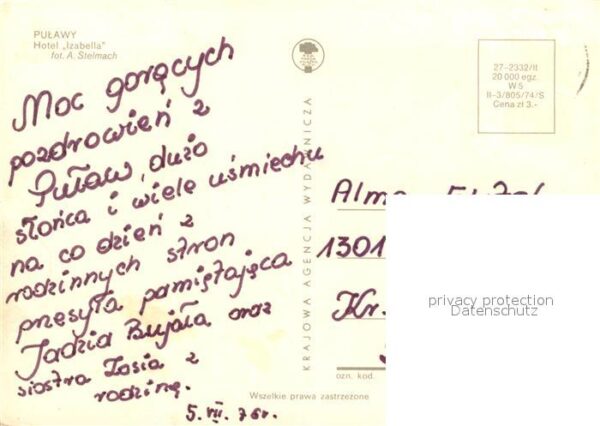 PUŁAWY
Hotel „Izabella"
fot. A. Stelmach
Moc gorących
pozdrowień z
Puław, dużo
słońca i wiele uśmiechu
na co dzień z
rodzinnych stron
przesyła pamiętająca
Jadzia Bujała oraz
siostra Zosia z
rodziną.
5. VII. 76r.
KRAJOWA AGENCJA WYDAWNICZA
27-2332/II
20 000 egz.
W 5
II-3/805/74/S
Cena zł 3.-
Alma
1301
Kr.
privacy protection
Datenschutz
ozn. kod.
Wszelkie prawa zastrzeżone